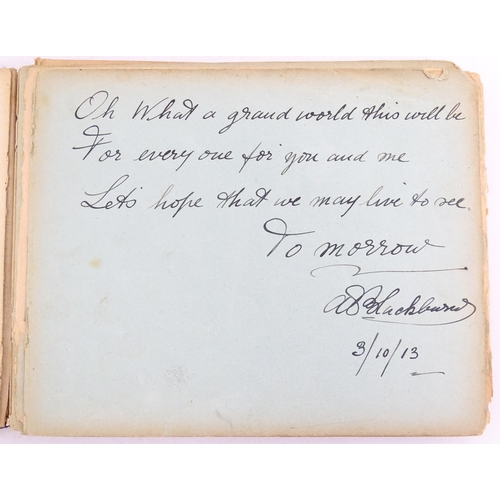 Oh What a grand world this will be
For every one for you and me
Let's hope that we may live to see.
To morrow
A B Blackburn
3/10/13